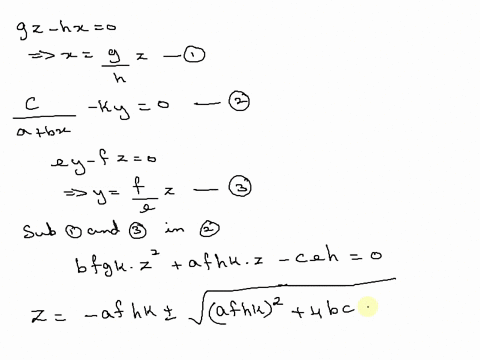 gz - hx = 0
⟹ x = g/h z — ①
c/(a+bx) - ky = 0 — ②
ey - fz = 0
⟹ y = f/e z — ③
Sub ① and ③ in ②
bfgk·z² + afhk·z - ceh = 0
z = -afhk ± √((afhk)² + 4bc